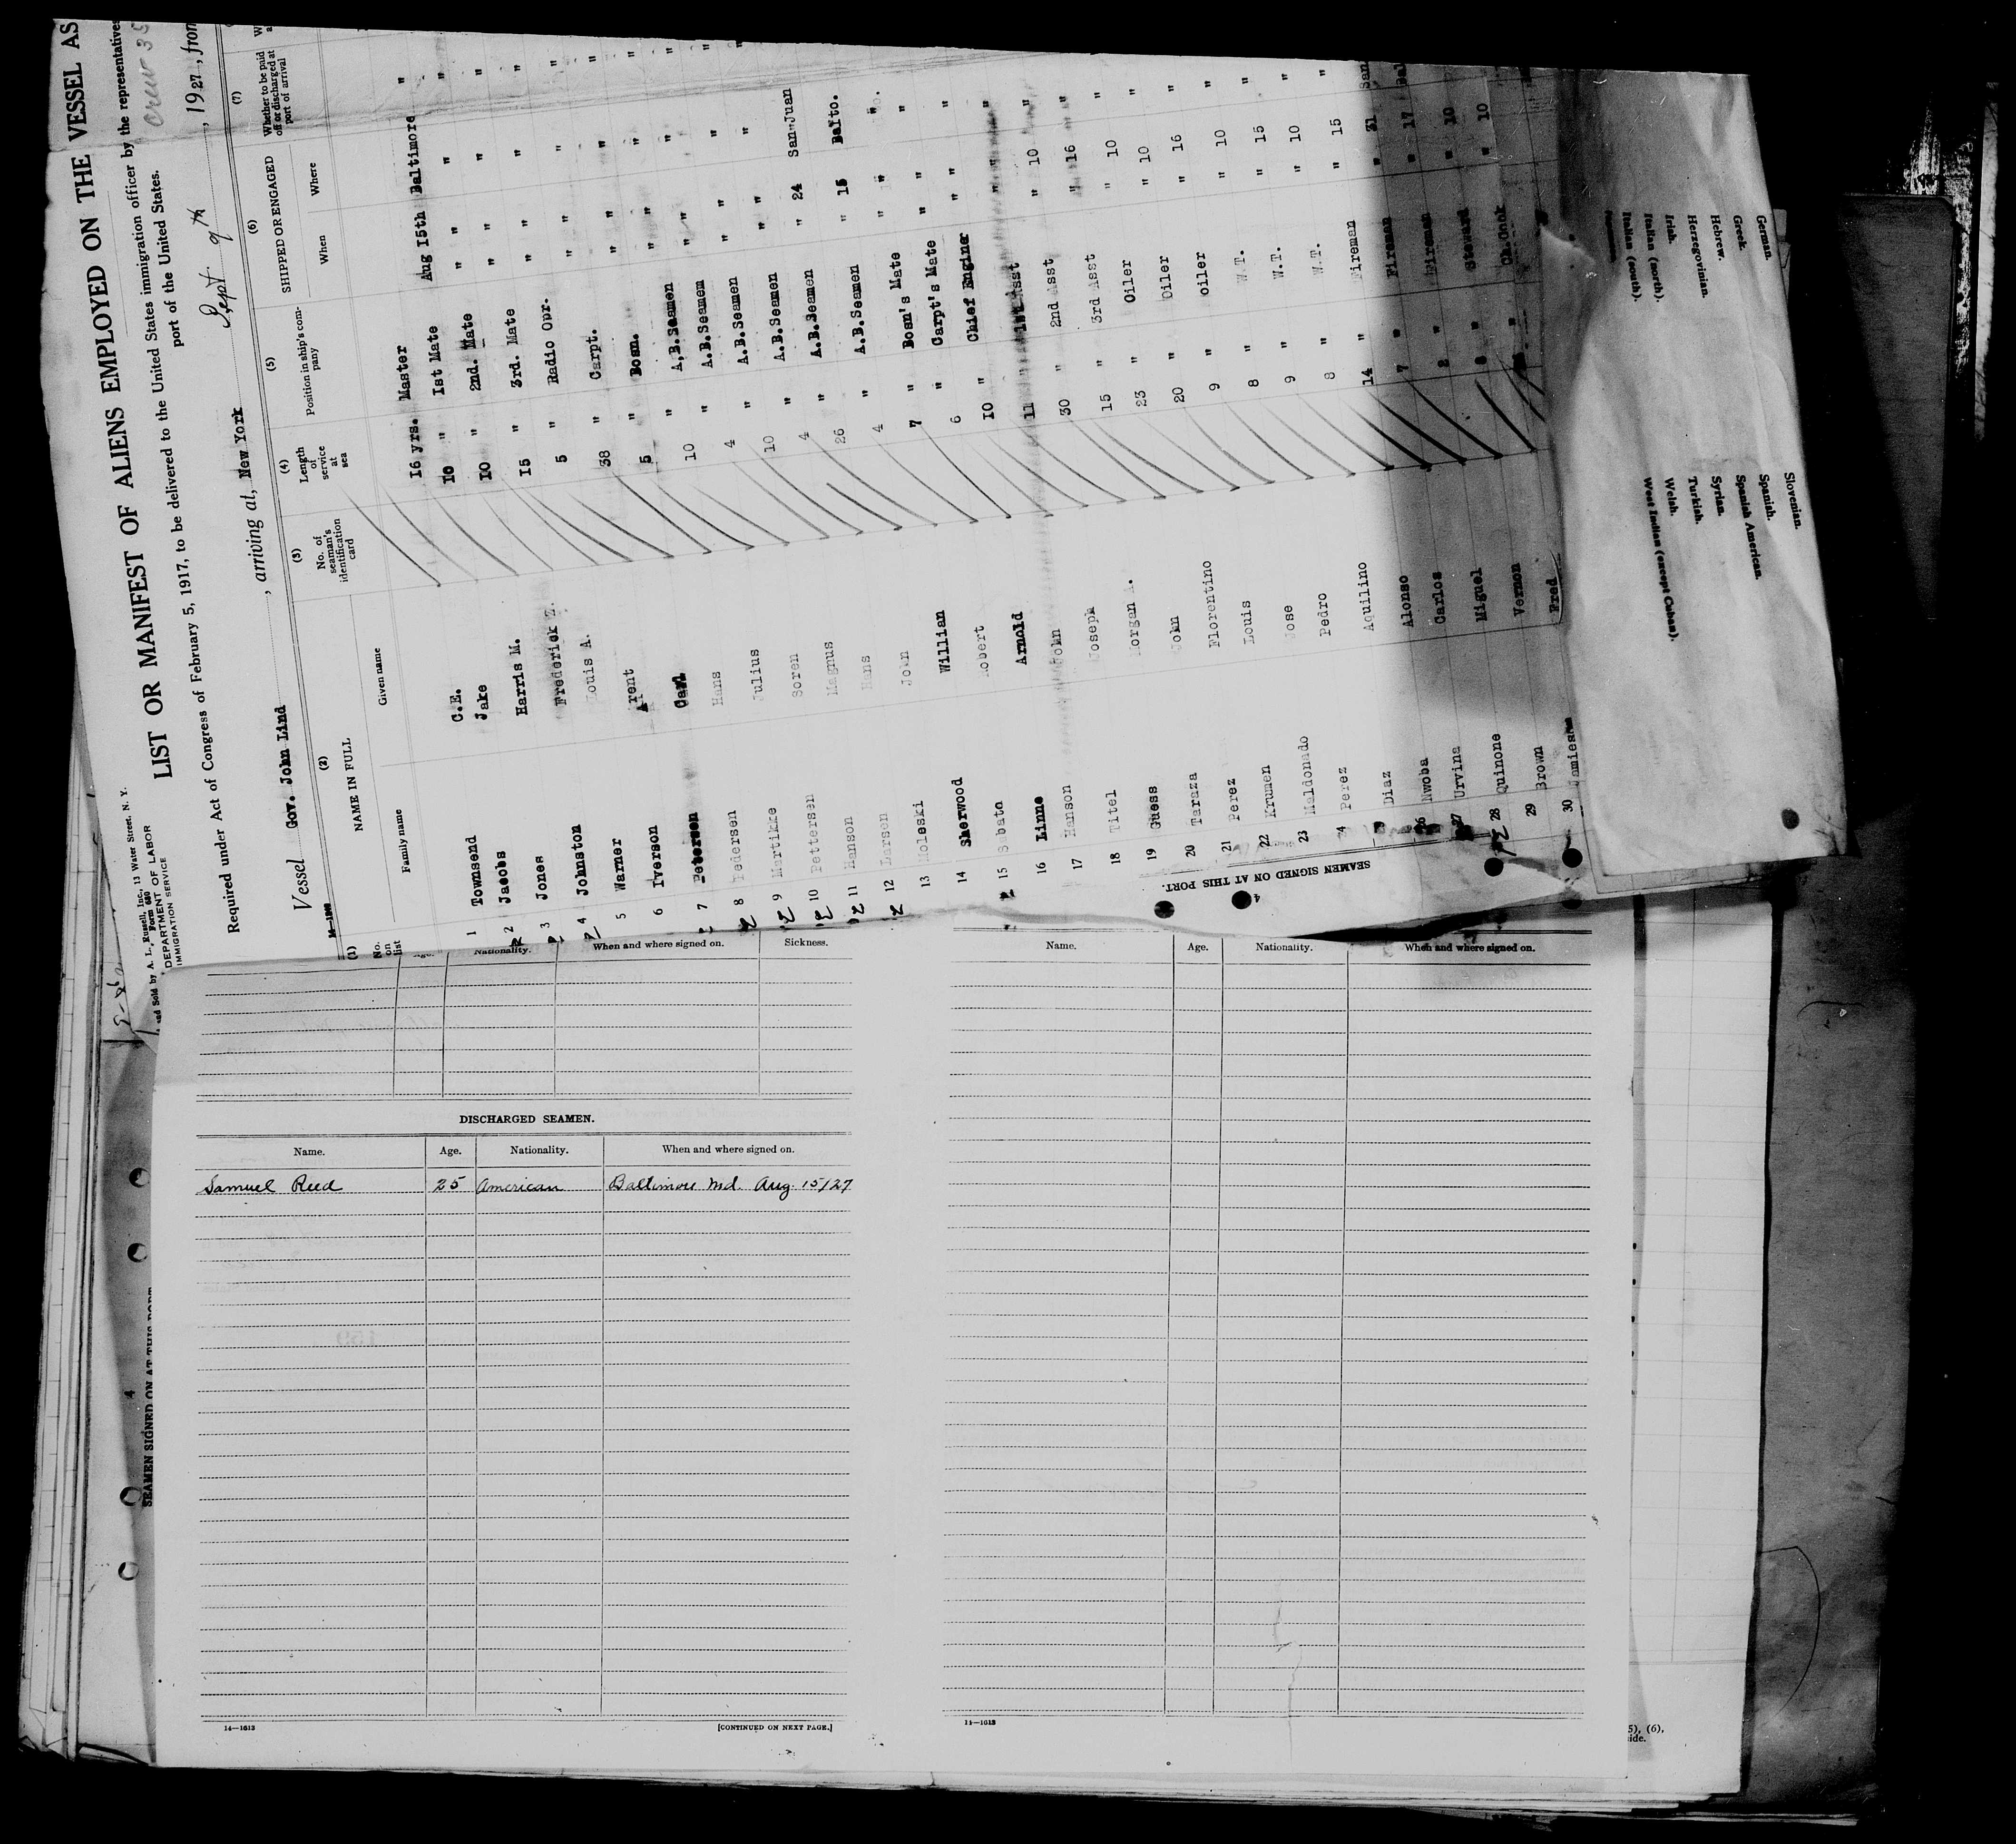 and Sold by A. L. Russell, Inc., 13 Water Street, N. Y.
Form 680
DEPARTMENT OF LABOR
IMMIGRATION SERVICE
LIST OR MANIFEST OF ALIENS EMPLOYED ON THE VESSEL AS
crew 35
Required under Act of Congress of February 5, 1917, to be delivered to the United States immigration officer by the representatives
port of the United States.
Vessel Gov. John Lind, arriving at, New York Sept 9th, 1927, from
(1) (2) (3) (4) (5) (6) (7)
No. on list NAME IN FULL No. of seaman's identification card Length of service at sea Position in ship's company SHIPPED OR ENGAGED Whether to be paid off or discharged at port of arrival
Family name Given name When Where
1 Townsend C.E. 16 yrs. Master Aug 15th Baltimore "
2 Jacobs Jake 10 " 1st Mate " " "
3 Jones Harris M. 10 " 2nd. Mate " " "
4 Johnston Frederick Z. 15 " 3rd. Mate " " "
5 Warner Louis A. 5 " Radio Opr. " " "
6 Iverson Arent 38 " Carpt. " " "
7 Petersen Carl 5 " Bosn. " " "
8 Pedersen Hans 10 " A.B.Seamen " " "
9 Martikke Julius 4 " A.B.Seamen " " "
10 Pettersen Soren 10 " A.B.Seamen " " "
11 Hanson Magnus 4 " A.B.Seamen " "
12 Larsen Hans 26 " A.B.Seamen " 24 San Juan
13 Moleski John 4 " A.B.Seamen " 15 Balto.
14 Sherwood Willian 7 " Bosn's Mate " "
15 Robert 6 " Carpt's Mate " " "
16 Linne Arnold 10 " Chief Enginer " " "
17 Hanson John 11 " 1st Asst " " "
18 Titel Joseph 30 " 2nd Asst " 10 "
19 Guess Morgan A. 15 " 3rd Asst " 16 "
20 Taraza John 23 " Oiler " 10 "
21 Perez Florentino 20 " Oiler " 10 "
22 Krumen Louis 9 " Oiler " 16 "
23 Maldonado Jose 8 " W.T. " 10 "
24 Perez Pedro 9 " W.T. " 15 "
Diaz Aquilino 8 " W.T. " 10 "
26 Nwoba Alonso 14 " Fireman " 15 "
27 Urvina Carlos 7 " Fireman " 31 San
28 Quinone Miguel 2 " Fireman " 17 Bal
29 Brown Vernon 8 " Steward " 10
30 Fred " Ch.Cook " 10
SEAMEN SIGNED ON AT THIS PORT.
4
German.
Greek.
Hebrew.
Herzegovinian.
Irish.
Italian (north).
Italian (south).
Slovenian.
Spanish.
Spanish American.
Syrian.
Turkish.
Welsh.
West Indian (except Cuban).
Age. Nationality. When and where signed on. Sickness.
Name. Age. Nationality. When and where signed on.
DISCHARGED SEAMEN.
Name. Age. Nationality. When and where signed on.
Samuel Reed 25 American Baltimore Md. Aug. 15/27
14—1613
[CONTINUED ON NEXT PAGE.]
14—1613
SEAMEN SIGNED ON AT THIS PORT
4
5), (6),
side.